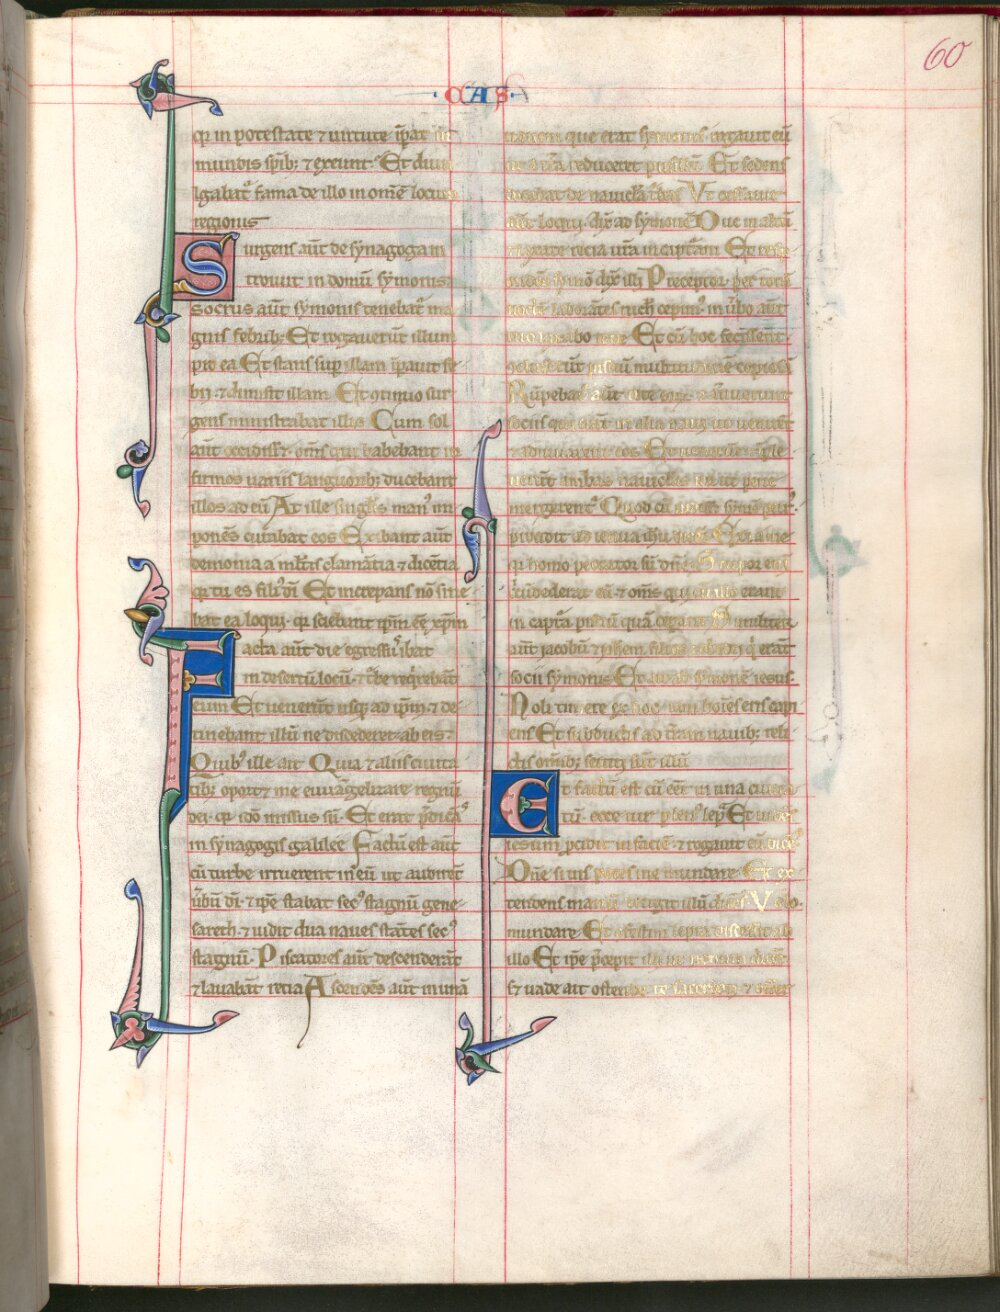 60
CAS
qr in potestate ⁊ uirtute ip̄at in
mundis sp̄ib; ⁊ exeunt Et diuu
lgabat᷑ fama de illo in om̄e locum
regionis
Surgens aūt de synagoga in
trouit in domū symonis
socrus aūt symonis tenebat᷑ ma
gnis febrib; Et rogauerūt illum
pro ea Et stans sup illam ip̄auit fe
bri ⁊ dimisit illam Et ꝯtinuo sur
gens ministrabat illis Cum sol
aūt occidisset om̄s qui habebant in
firmos uariis languorib; ducebant
illos ad eū At ille singl̓is man᷒ im
ponēs curabat eos Exibant aūt
demonia a ml̓tis clamātia ⁊ dicētia
qr tu es fili᷒ dī Et increpans nō sine
bat ea loqui qr sciebant ip̄m eē xp̄m
Facta aūt die egressus ibat
in desertū locū ⁊ t᷑be reqrebāt
eum Et uenerūt usq; ad ip̄m ⁊ de
tinebant illū ne discederet ab eis
Quib᷒ ille ait Quia ⁊ aliis ciuita
tib; oport& me euuāgelizare regnū
dei qr ideo missus sū Et erat p̄dicās
in synagogis galilee Factū est aūt
cū turbe irruerent in eū ut audirēt
ūbū dī ⁊ ip̄e stabat sec᷒ stagnū gene
sareth ⁊ uidit dua naues stātes sec᷒
stagnū Piscatores aūt descenderāt
⁊ lauabāt retia Ascendēs aūt in unā
nauem que erat symonis rogauit eū
a t᷑ra reducere pusillū Et sedens
docebat de nauicl̓a t᷑bas Vt cessauit
loqui dix̄ ad symonē Duc in altū
⁊ laxate retia ūra in capturam Et
symō dix̄ illi Preceptor per totā
noctē laborātes nichil cepim᷒ in ūbo aūt
tuo laxabo rete Et cū hoc fecissent
ꝯcluserūt pisciū multitudinē copiosā
Rūpebat᷑ aūt rete eorū ⁊ ānuerunt
sociis qui erāt in alia naui ut uenirēt
⁊ adiuuarent eos Et uenerūt ⁊ īple
uerūt ambas nauiclas ita ut pene
mergerent᷑ Quod cū symō petr᷒
procidit ad genua ih̄u Exi a me
qr homo peccator sū dn̄e Stupor enī
cūdederat eū ⁊ om̄s qui cū illo erant
in captura pisciū quā ceperant Similiter
aūt iacobū ⁊ ioh̄em filios zebedei qi erāt
socii symonis Et ait ad symonē iesus
Noli timere ex hoc iam hoīes eris capi
ens Et subductis ad t᷑ram nauib; reli
ctis omib; secuti sūt illū
Et factū est cū eēt in una ciuita
tū ecce uir plen᷒ lep᷑a Et uidēs
iesum procidit in faciē ⁊ rogauit eū dicēs
Dn̄e si uis potes me mundare Et ex
tendens manū tetigit illū dicēs Volo
mundare Et ꝯfestim lepra discessit ab
illo Et ip̄e p̄cepit illi ut
s& uade ait ostende te sacerdoti ⁊ offer